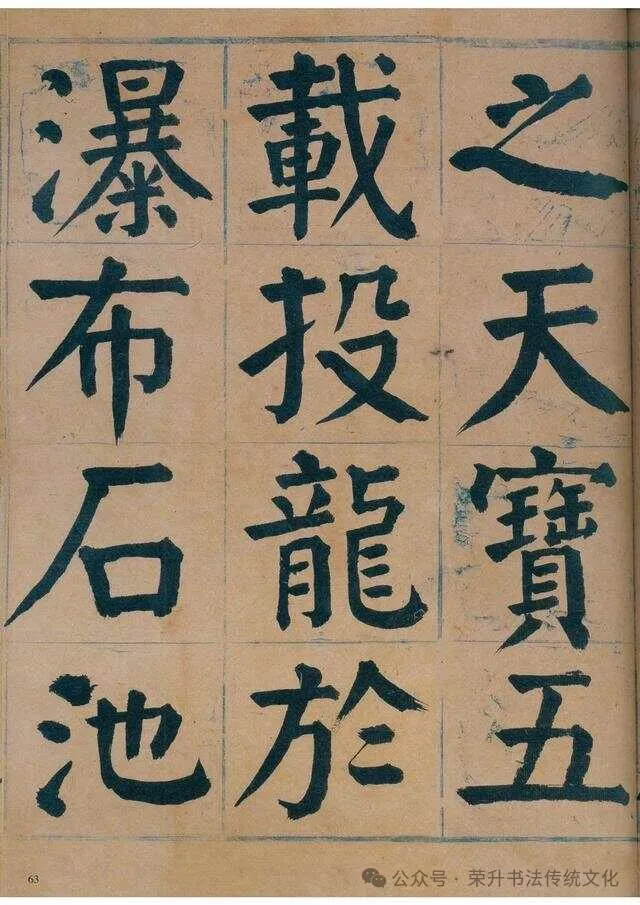 之天寶五
載投龍於
瀑布石池
63
公众号 · 荣升书法传统文化